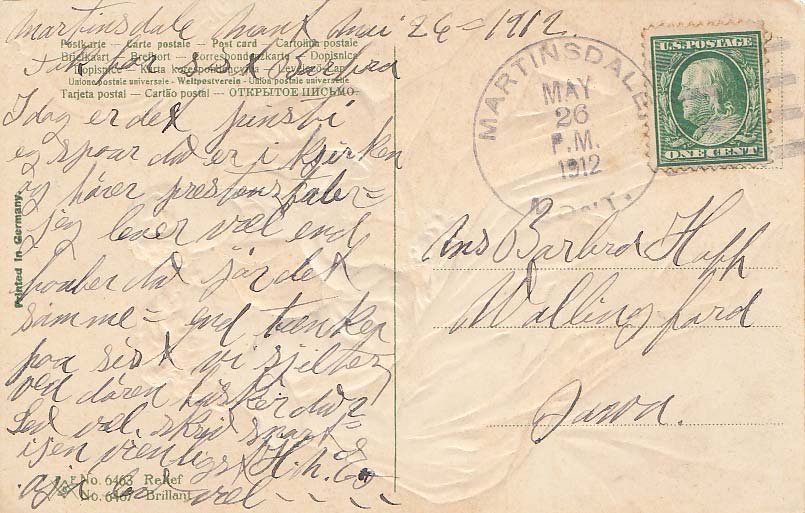 Martinsdale Mont Mai 26 = 1912.
Postkarte — Carte postale — Post card — Cartolina postale
Briefkaart — Brefkort — Correspondenzkarte — Dopisnice
Dopisnice — Karta korespondencyjna — Levelező-Lap
Unione postale universelle - Weltpostverein - Union postale universelle
Tarjeta postal — Cartão postal — ОТКРЫТОЕ ПИСЬМО
Barbra
I dag er det pinsti
eg spaar du er i kjirken
og hører presten
jeg lever vel end
haaber du gár det
samme = end tænker
paa sist vi
ved dáren husker du?
Lev vel. skriv snart =
igen venligst H. h. E
vel - - - -
Printed in Germany.
No. 6463 Relief
No. 6467 Brillant
MARTINSDALE
MAY
26
P.M.
1912
MONT.
U.S. POSTAGE
ONE CENT
Barbra Hopp
Wallingford
Iowa.